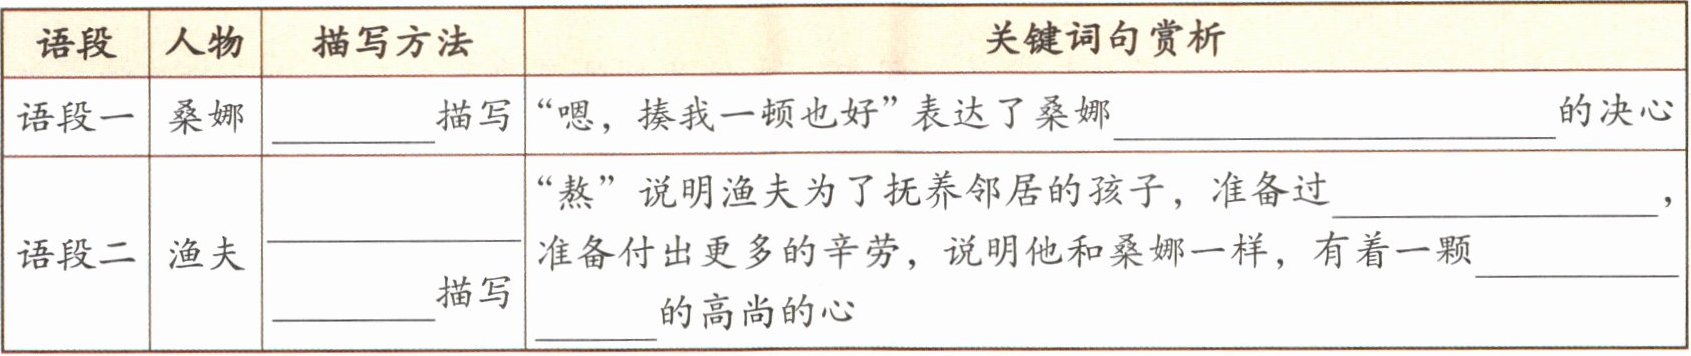 语段 人物 描写方法 关键词句赏析
语段一 桑娜 ________描写 “嗯，揍我一顿也好”表达了桑娜____________________的决心
语段二 渔夫 ____________ ________描写 “熬”说明渔夫为了抚养邻居的孩子，准备过________________，
准备付出更多的辛劳，说明他和桑娜一样，有着一颗__________
______的高尚的心